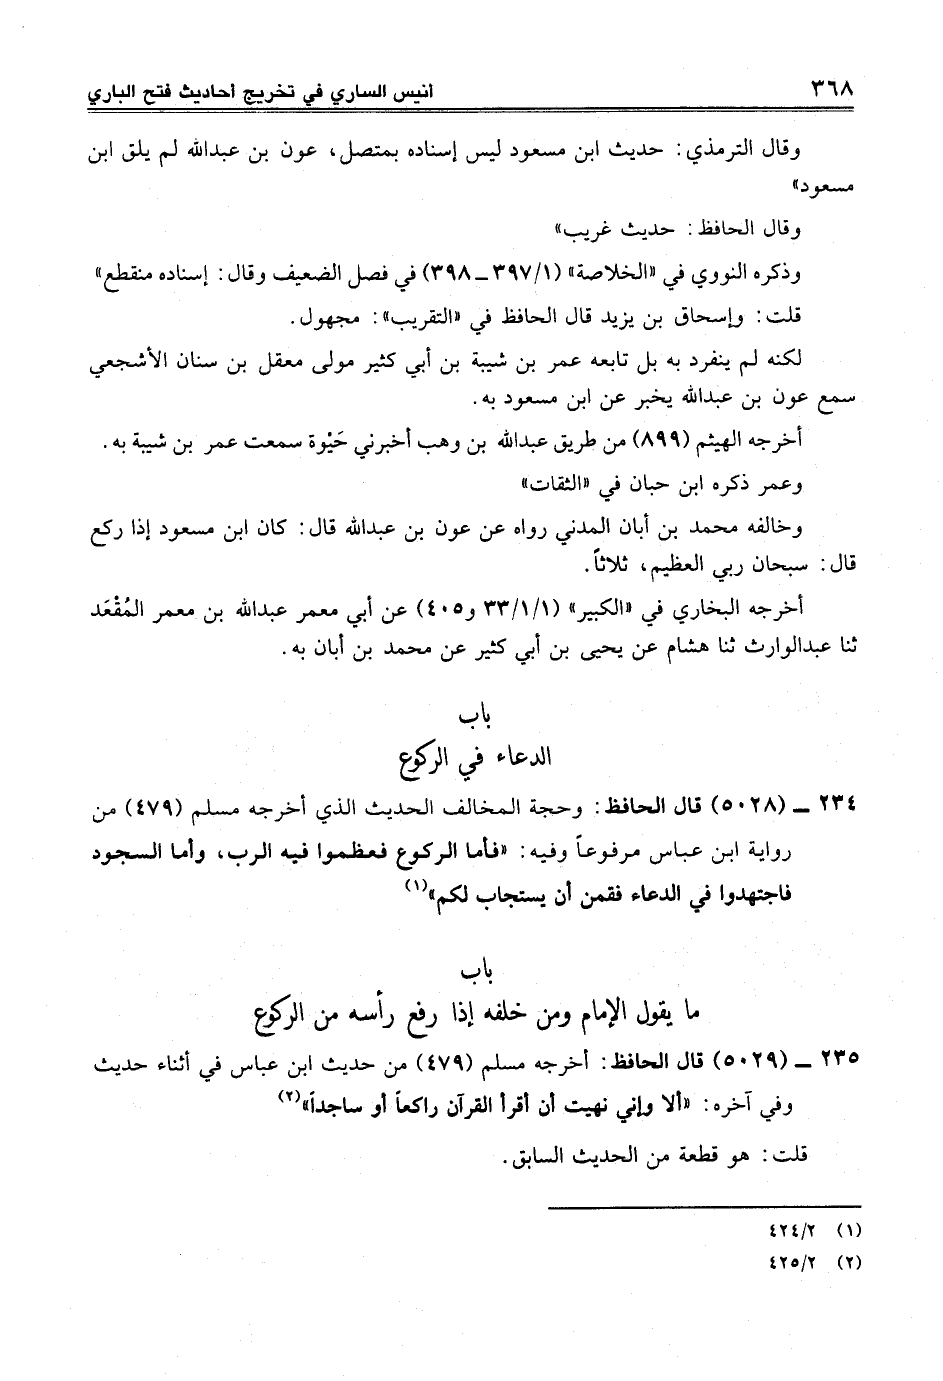 ٣٦٨ أنيس الساري في تخريج أحاديث فتح الباري
وقال الترمذي: حديث ابن مسعود ليس إسناده بمتصل، عون بن عبدالله لم يلق ابن
مسعود»
وقال الحافظ: حديث غريب»
وذكره النووي في «الخلاصة» (٣٩٧/١ ـ ٣٩٨) في فصل الضعيف وقال: إسناده منقطع»
قلت: وإسحاق بن يزيد قال الحافظ في «التقريب»: مجهول.
لكنه لم ينفرد به بل تابعه عمر بن شيبة بن أبي كثير مولى معقل بن سنان الأشجعي
سمع عون بن عبدالله يخبر عن ابن مسعود به.
أخرجه الهيثم (٨٩٩) من طريق عبدالله بن وهب أخبرني حَيْوة سمعت عمر بن شيبة به.
وعمر ذكره ابن حبان في «الثقات»
وخالفه محمد بن أبان المدني رواه عن عون بن عبدالله قال: كان ابن مسعود إذا ركع
قال: سبحان ربي العظيم، ثلاثاً.
أخرجه البخاري في «الكبير» (٣٣/١/١ و٤٠٥) عن أبي معمر عبدالله بن معمر المُقْعَد
ثنا عبدالوارث ثنا هشام عن يحيى بن أبي كثير عن محمد بن أبان به.
باب
الدعاء في الركوع
٢٣٤ ـ (٥٠٢٨) قال الحافظ: وحجة المخالف الحديث الذي أخرجه مسلم (٤٧٩) من
رواية ابن عباس مرفوعاً وفيه: «فأما الركوع فعظموا فيه الرب، وأما السجود
فاجتهدوا في الدعاء فقمن أن يستجاب لكم»(١)
باب
ما يقول الإمام ومن خلفه إذا رفع رأسه من الركوع
٢٣٥ ـ (٥٠٢٩) قال الحافظ: أخرجه مسلم (٤٧٩) من حديث ابن عباس في أثناء حديث
وفي آخره: «ألا وإني نهيت أن أقرأ القرآن راكعاً أو ساجداً»(٢)
قلت: هو قطعة من الحديث السابق.
(١) ٤٢٤/٢
(٢) ٤٢٥/٢